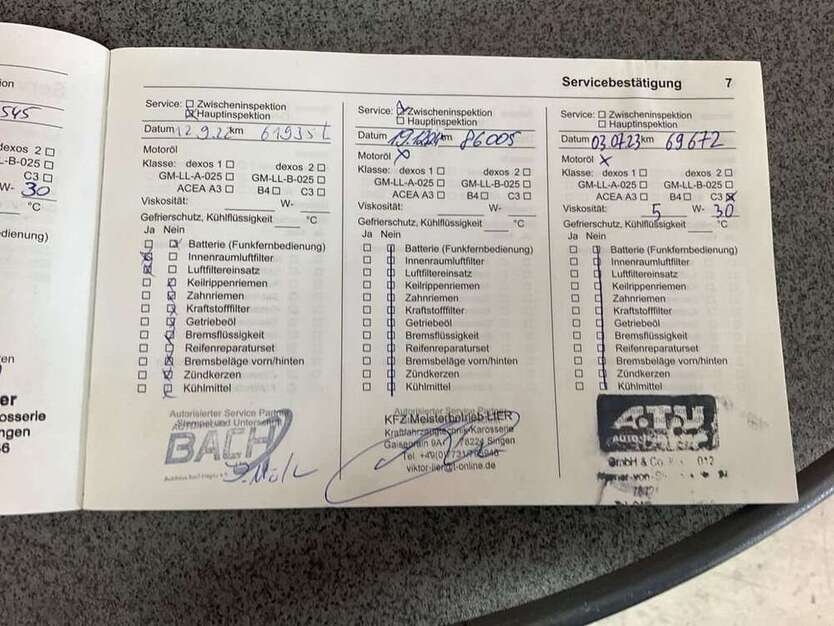 ion
Servicebestätigung 7
545
dexos 2 ☐
L-B-025 ☐
C3 ☐
W- 30
°C
edienung)
er
osserie
ngen
Service: ☐ Zwischeninspektion
☒ Hauptinspektion
Datum 12.9.22 km 61935
Motoröl
Klasse: dexos 1 ☐ dexos 2 ☐
GM-LL-A-025 ☐ GM-LL-B-025 ☐
ACEA A3 ☐ B4 ☐ C3 ☐
Viskosität: W-
Gefrierschutz, Kühlflüssigkeit °C
Ja Nein
☐ ☒ Batterie (Funkfernbedienung)
☒ ☐ Innenraumluftfilter
☒ ☐ Luftfiltereinsatz
☐ ☒ Keilrippenriemen
☐ ☒ Zahnriemen
☐ ☒ Kraftstofffilter
☐ ☒ Getriebeöl
☐ ☒ Bremsflüssigkeit
☐ ☒ Reifenreparaturset
☐ ☒ Bremsbeläge vorn/hinten
☐ ☒ Zündkerzen
☐ ☒ Kühlmittel
Autorisierter Service Partner
Stempel und Unterschrift
BACH
Service: ☒ Zwischeninspektion
☐ Hauptinspektion
Datum km 86005
Motoröl X
Klasse: dexos 1 ☐ dexos 2 ☐
GM-LL-A-025 ☐ GM-LL-B-025 ☐
ACEA A3 ☐ B4 ☐ C3 ☐
Viskosität: W-
Gefrierschutz, Kühlflüssigkeit °C
Ja Nein
☐ ☐ Batterie (Funkfernbedienung)
☐ ☐ Innenraumluftfilter
☐ ☐ Luftfiltereinsatz
☐ ☐ Keilrippenriemen
☐ ☐ Zahnriemen
☐ ☐ Kraftstofffilter
☐ ☐ Getriebeöl
☐ ☐ Bremsflüssigkeit
☐ ☐ Reifenreparaturset
☐ ☐ Bremsbeläge vorn/hinten
☐ ☐ Zündkerzen
☐ ☐ Kühlmittel
Autorisierter Service
KFZ Meisterbetrieb LIER
Kraftfahrzeugtechnik-Karosserie
78224 Singen
viktor-lier@t-online.de
Service: ☐ Zwischeninspektion
☐ Hauptinspektion
Datum 03.07.23 km 69672
Motoröl X
Klasse: dexos 1 ☐ dexos 2 ☐
GM-LL-A-025 ☐ GM-LL-B-025 ☐
ACEA A3 ☐ B4 ☐ C3 ☒
Viskosität: 5 W- 30
Gefrierschutz, Kühlflüssigkeit °C
Ja Nein
☐ ☐ Batterie (Funkfernbedienung)
☐ ☐ Innenraumluftfilter
☐ ☐ Luftfiltereinsatz
☐ ☐ Keilrippenriemen
☐ ☐ Zahnriemen
☐ ☐ Kraftstofffilter
☐ ☐ Getriebeöl
☐ ☐ Bremsflüssigkeit
☐ ☐ Reifenreparaturset
☐ ☐ Bremsbeläge vorn/hinten
☐ ☐ Zündkerzen
☐ ☐ Kühlmittel
A.T.U
GmbH & Co.